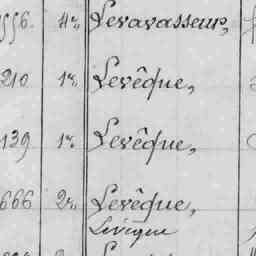 556. 4º, Levavasseur,
210 1º, Levêque,
139 1º, Levêque,
666 2º, Levêque,
Lévêque